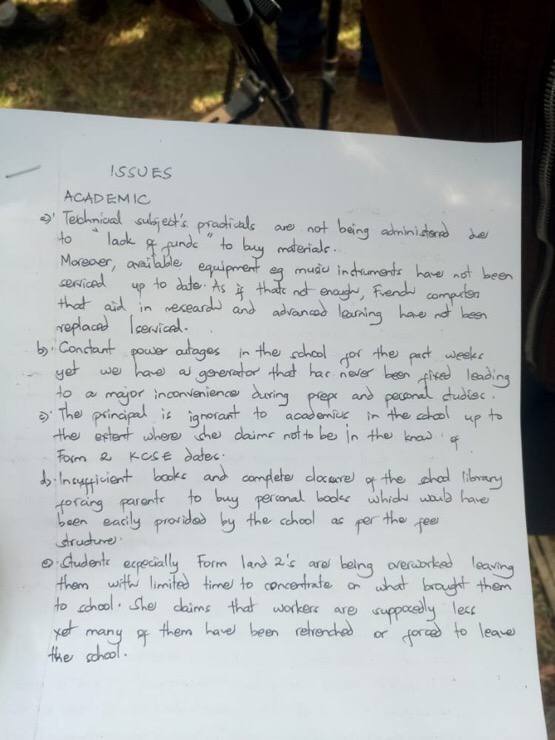 ISSUES
ACADEMIC
a)· Technical subject's practicals are not being administered due
to "lack of funds" to buy materials.
Moreover, available equipment eg music instruments have not been
serviced up to date. As if thats not enough, French computers
that aid in research and advanced learning have not been
replaced /serviced.
b)· Constant power outages in the school for the past weeks
yet we have a generator that has never been fixed leading
to a major inconvenience during preps and personal studies.
c)· The principal is ignorant to academics in the school up to
the extent where she claims not to be in the know of
Form 2 KCSE dates.
d)· Insufficient books and complete closure of the school library
forcing parents to buy personal books which would have
been easily provided by the school as per the fee
structure.
e)· Students especially Form 1 and 2's are being overworked leaving
them with limited time to concentrate on what brought them
to school. She claims that workers are supposedly less
yet many of them have been retrenched or forced to leave
the school.